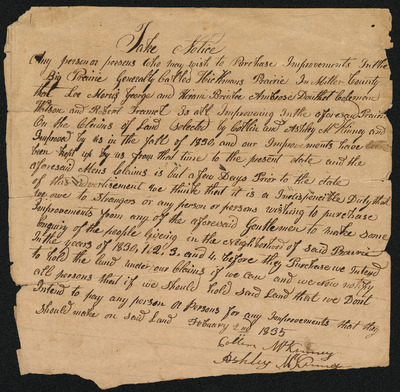 Take Notice
Any person or persons who may wish to Purchase Improvements In the
Big Prairie Generally Called Hickmans Prairie In Miller County
that Lee Morris George and Hiram Brinlee Ambrose Douthet Coleman
Watson and Robert Is all Improveing In the aforesaid Prairie
On the Claims of Land Selected by Collin and Ashley McKinney and
Improved by us in the fall of 1830 and our Improvements have
been kept up by us from that time to the present date and the
aforesaid Mens Claims is but a few Days Prior to the date
of this advertisement we think that it is a Indispencible Duty that
we owe to Strangers or any person or persons wishing to purchase
Improvements from any of the aforesaid Gentlemen to make some
Enquiry of the people Liveing in the Neighborhood of said Prairie
In the years of 1830, 1, 2, 3, and 4, before they Purchase we Intend
to hold the land under our Claims if we can and we now notify
all persons that if we should hold said Land that we Dont
Intend to pay any person or Persons for any Improvements that they
Should make on said Land Febuary 2nd 1835
Collin McKinney
Ashley McKinney